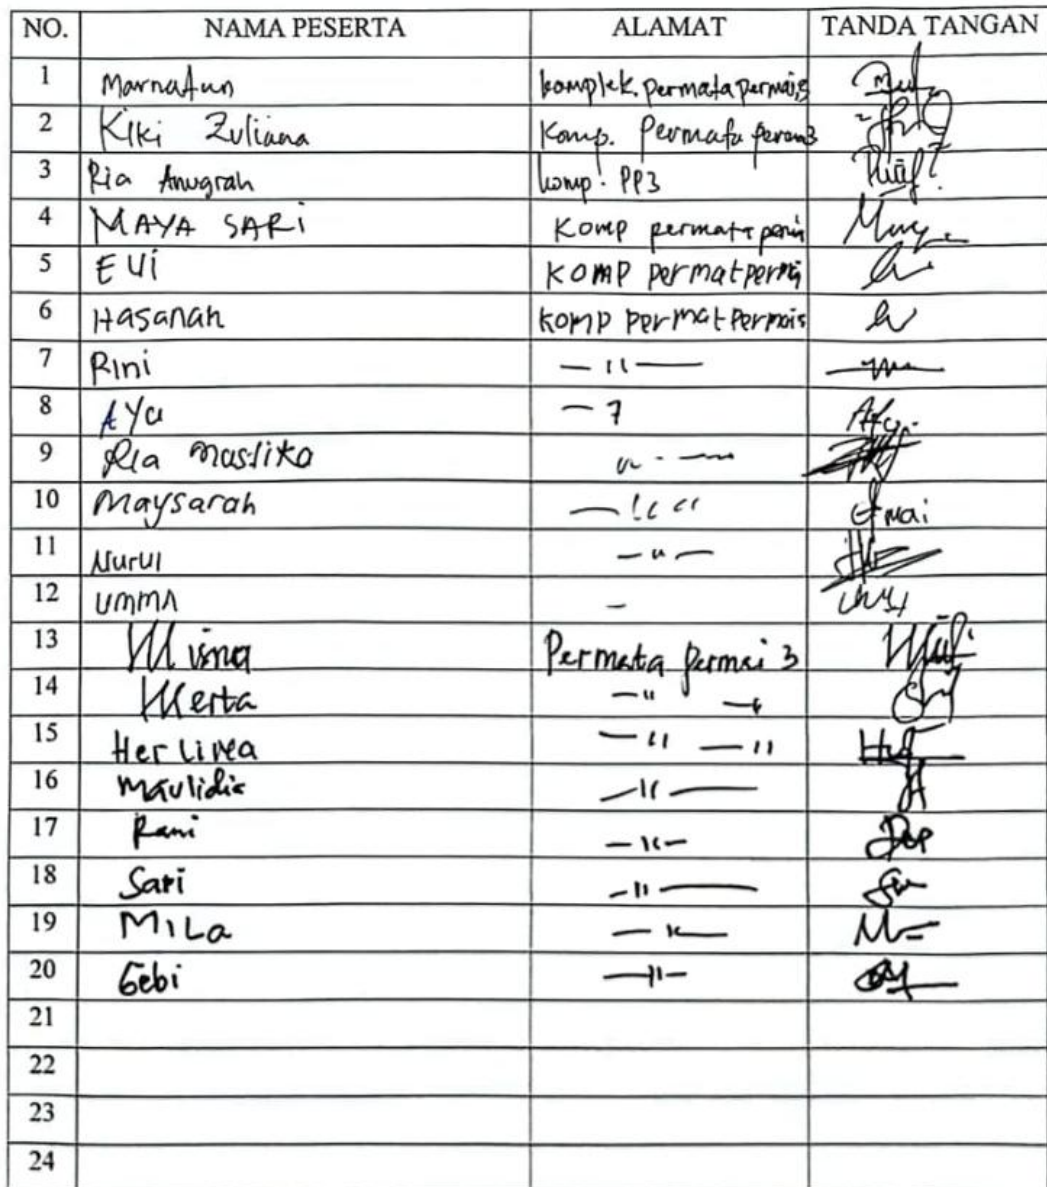 NO. NAMA PESERTA ALAMAT TANDA TANGAN
1 Marnatun komplek. permata permai 3
2 Kiki Zuliana Komp. Permata permai 3
3 Ria Anugrah komp. PP3
4 MAYA SARI Komp permata permai
5 EVI KOMP permat permai
6 Hasanah KOMP permat Permais
7 Rini — 11 —
8 AYU —
9 Ria Maslika — " —
10 Maysarah — " —
11 Nurul — " —
12 UMMA —
13 Misna Permata Permai 3
14 Merta — " —
15 Herlinea — 11 — 11
16 Maulidia — 11 —
17 Rani — 11 —
18 Sari — 11 —
19 MILa — 11 —
20 Gebi — 11 —
21
22
23
24